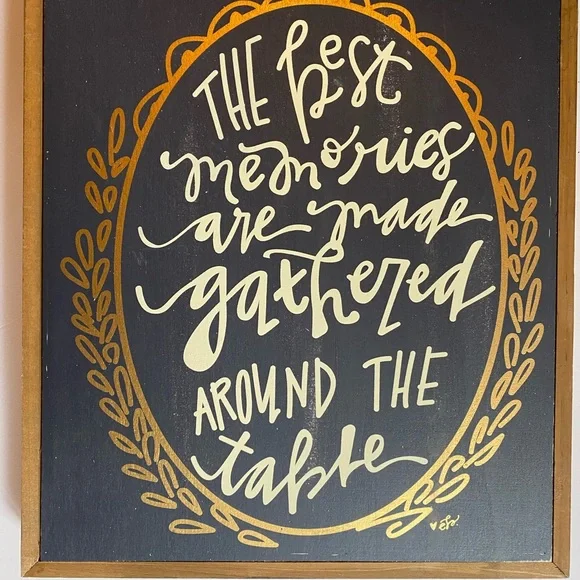 THE best
memories
are made
gathered
AROUND THE
table